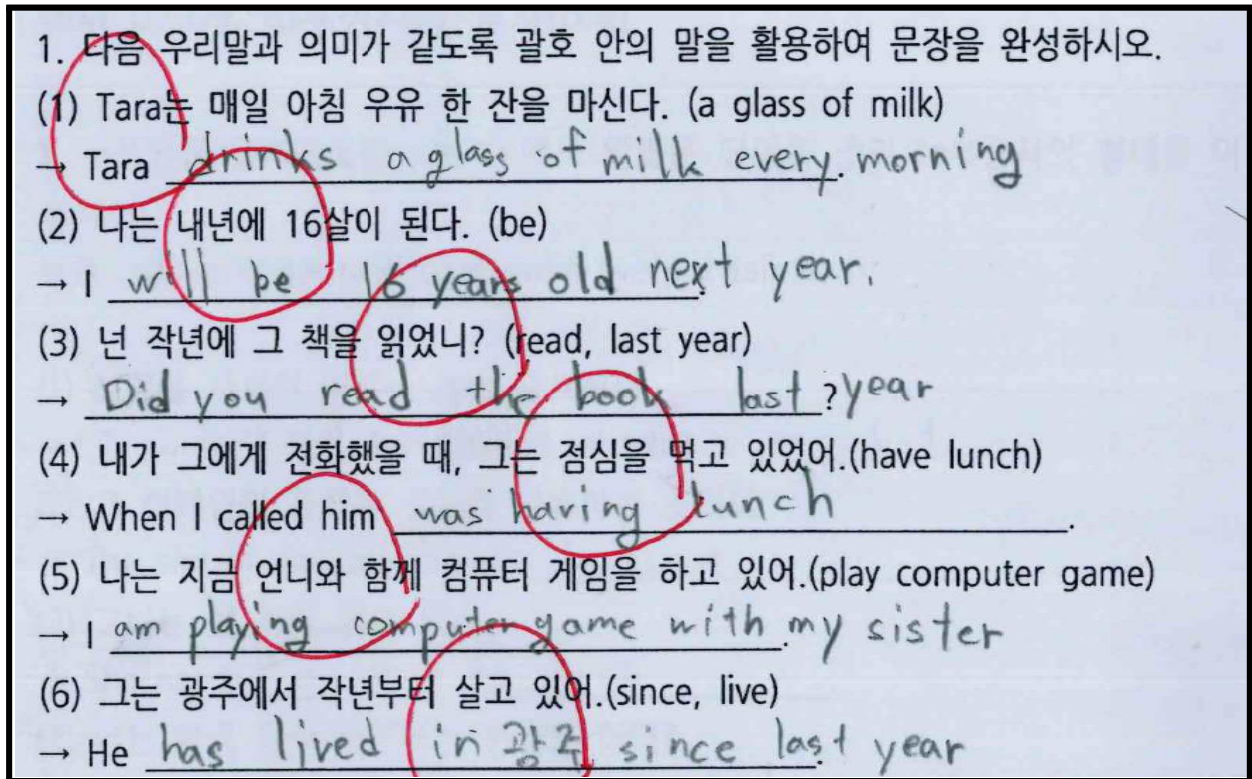 1. 다음 우리말과 의미가 같도록 괄호 안의 말을 활용하여 문장을 완성하시오.
(1) Tara는 매일 아침 우유 한 잔을 마신다. (a glass of milk)
→ Tara drinks a glass of milk every morning.
(2) 나는 내년에 16살이 된다. (be)
→ I will be 16 years old next year.
(3) 넌 작년에 그 책을 읽었니? (read, last year)
→ Did you read the book last ? year
(4) 내가 그에게 전화했을 때, 그는 점심을 먹고 있었어.(have lunch)
→ When I called him was having lunch .
(5) 나는 지금 언니와 함께 컴퓨터 게임을 하고 있어.(play computer game)
→ I am playing computer game with . my sister
(6) 그는 광주에서 작년부터 살고 있어.(since, live)
→ He has lived in 광주 since last year